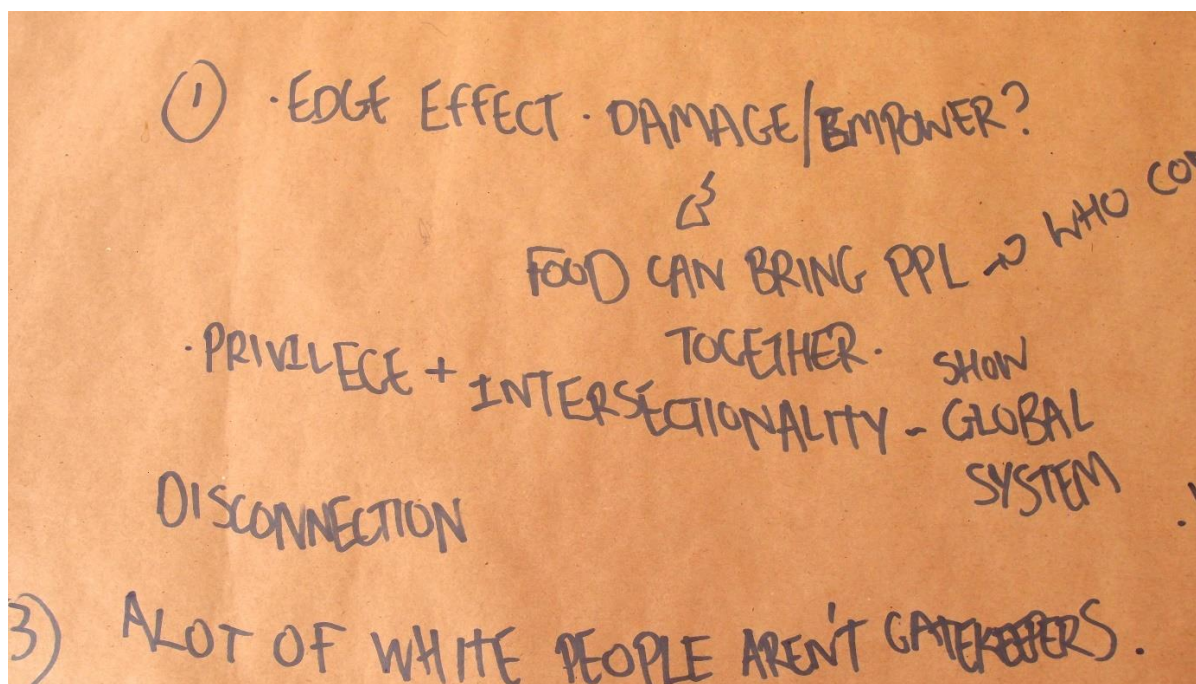 ① · EDGE EFFECT · DAMAGE/EMPOWER?
FOOD CAN BRING PPL → WHO
TOGETHER.
· PRIVILEGE + INTERSECTIONALITY - SHOW
GLOBAL
SYSTEM
DISCONNECTION
3) ALOT OF WHITE PEOPLE AREN'T GATEKEEPERS.